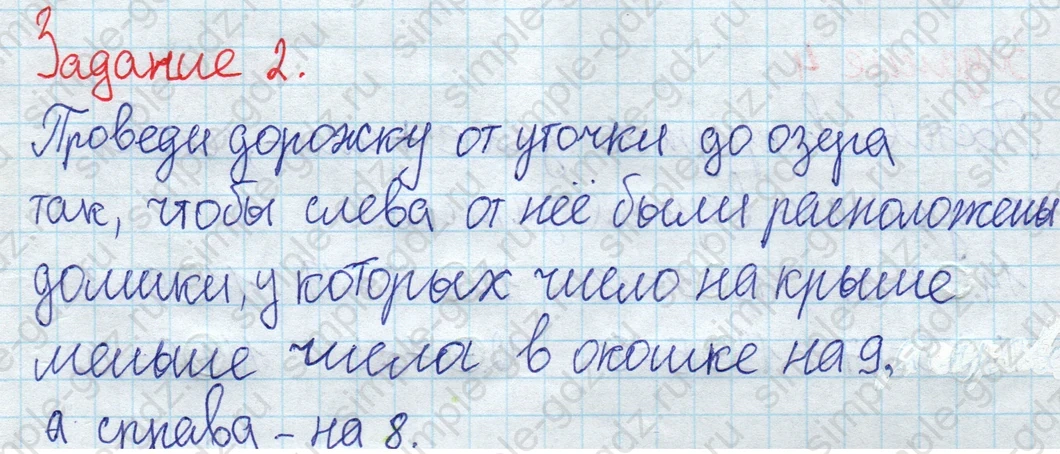 Задание 2.
Проведи дорожку от уточки до озера
так, чтобы слева от неё были расположены
домики, у которых число на крыше
меньше числа в окошке на 9,
а справа - на 8.